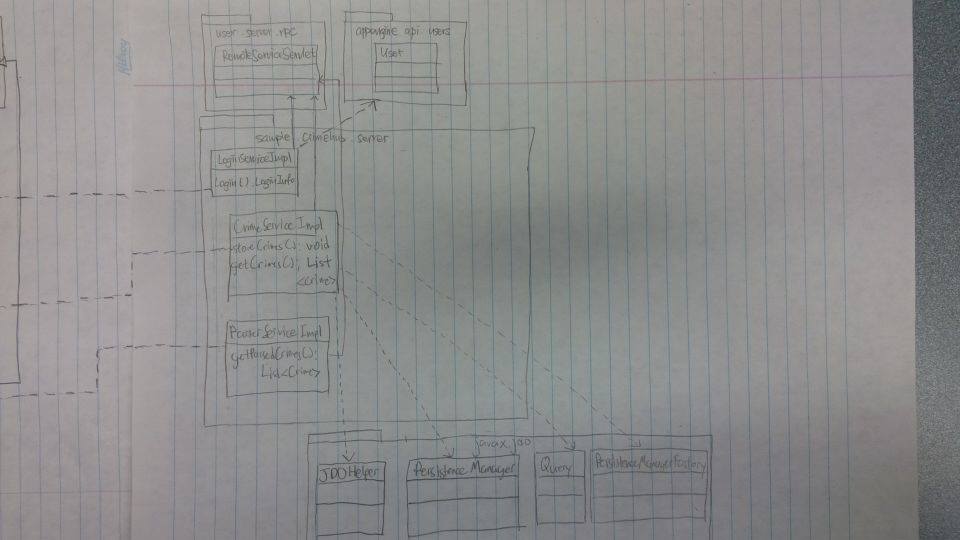 user.server.rpc
RemoteServiceServlet
appengine.api.users
User
sample.crimehub.server
LoginServiceImpl
Login():LoginInfo
CrimeServiceImpl
storeCrimes(): void
getCrimes(): List
<Crime>
ParserServiceImpl
getParsedCrimes():
List<Crime>
javax.jdo
JDOHelper
Persistence Manager
Query
PersistenceManagerFactory